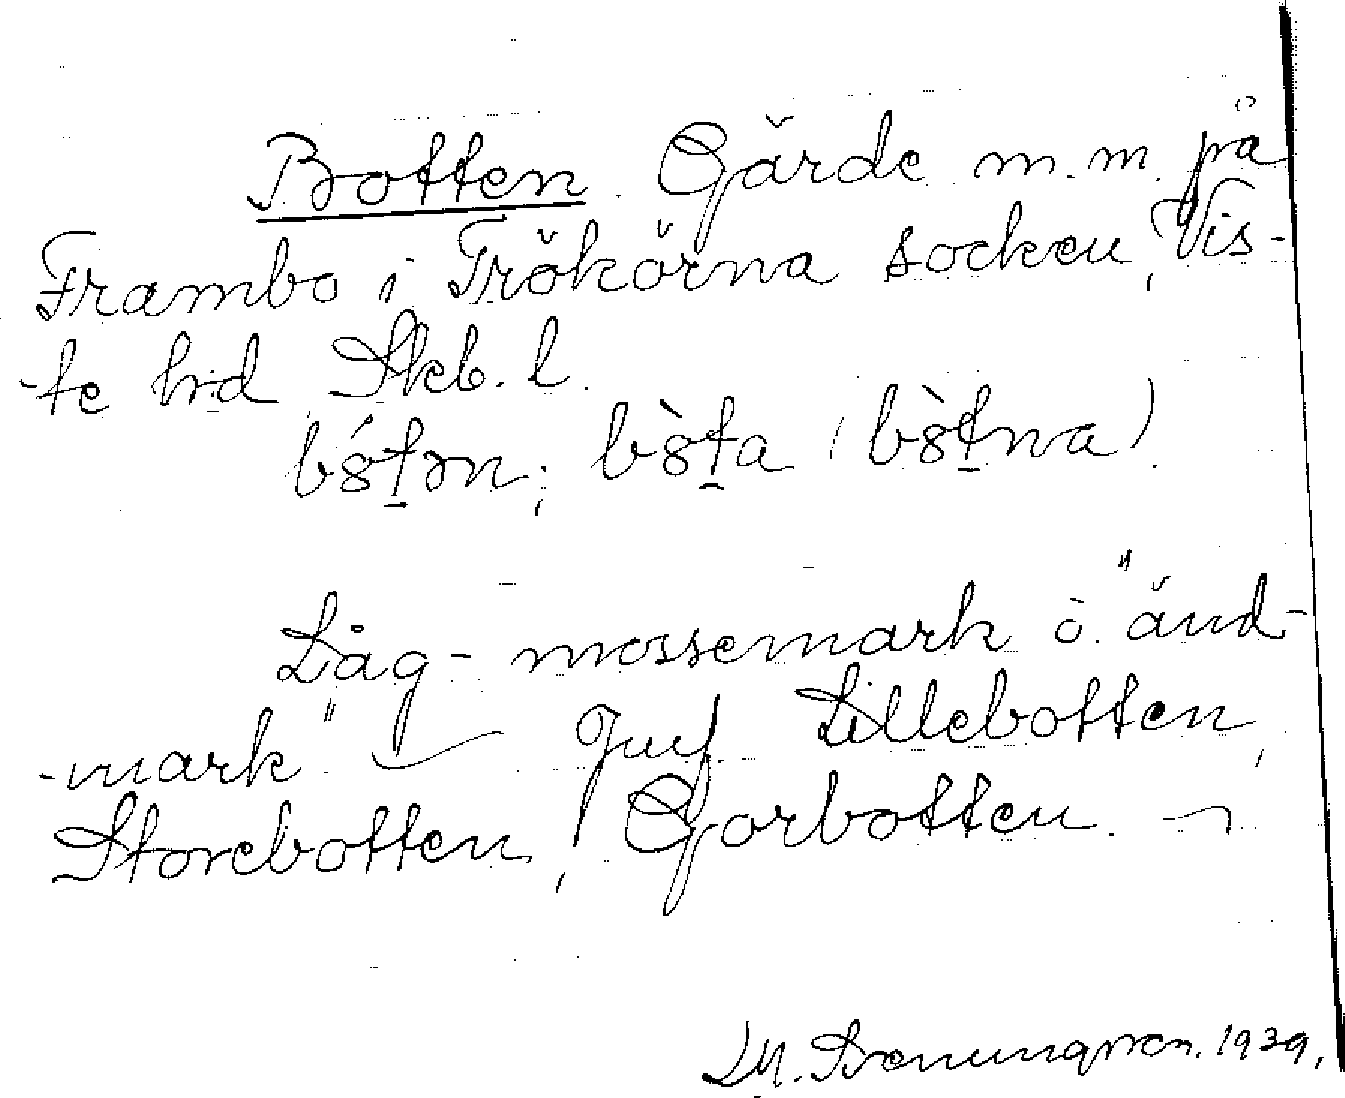 Botten. Gärde m.m. på
Frambo i Trökörna socken, Vis-
-te hd Skb. l.
bo̍tən; bòta (bòtna)
Låg- mossemark o. "änd-
-mark" — Jmf Lillebotten,
Storebotten, Gorbotten. —
1939.